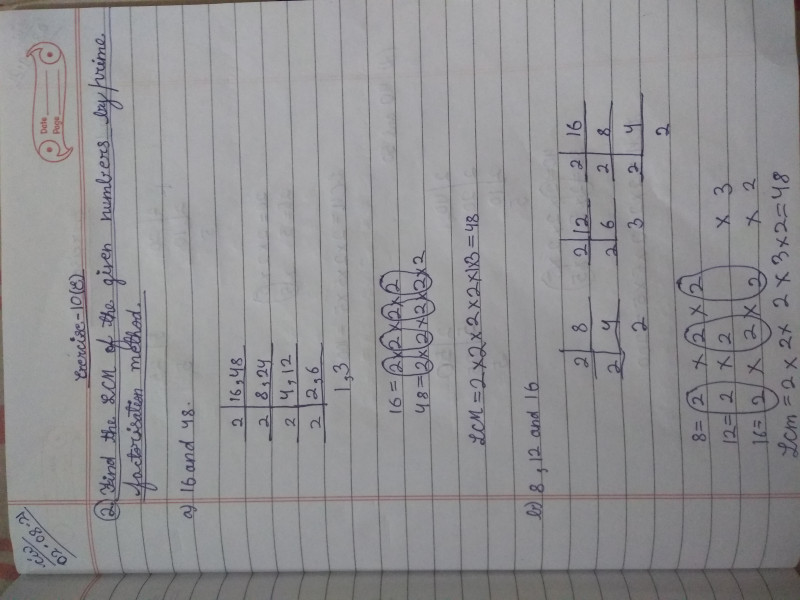 Date
Page
Exercise-10(C)
② Find the LCM of the given numbers by prime
factorisation method.
a) 16 and 48.
2 | 16, 48
2 | 8, 24
2 | 4, 12
2 | 2, 6
1, 3
16 = 2×2×2×2
48 = 2×2×2×2×2
LCM = 2×2×2×2×1×3 = 48
b) 8, 12 and 16
2 | 8   2 | 12   2 | 16
2 | 4   2 | 6   2 | 8
2   3   2 | 4
2
8 = 2 × 2 × 2
12 = 2 × 2 × 3
16 = 2 × 2 × 2 × 2
Lcm = 2 × 2 × 2 × 3 × 2 = 48